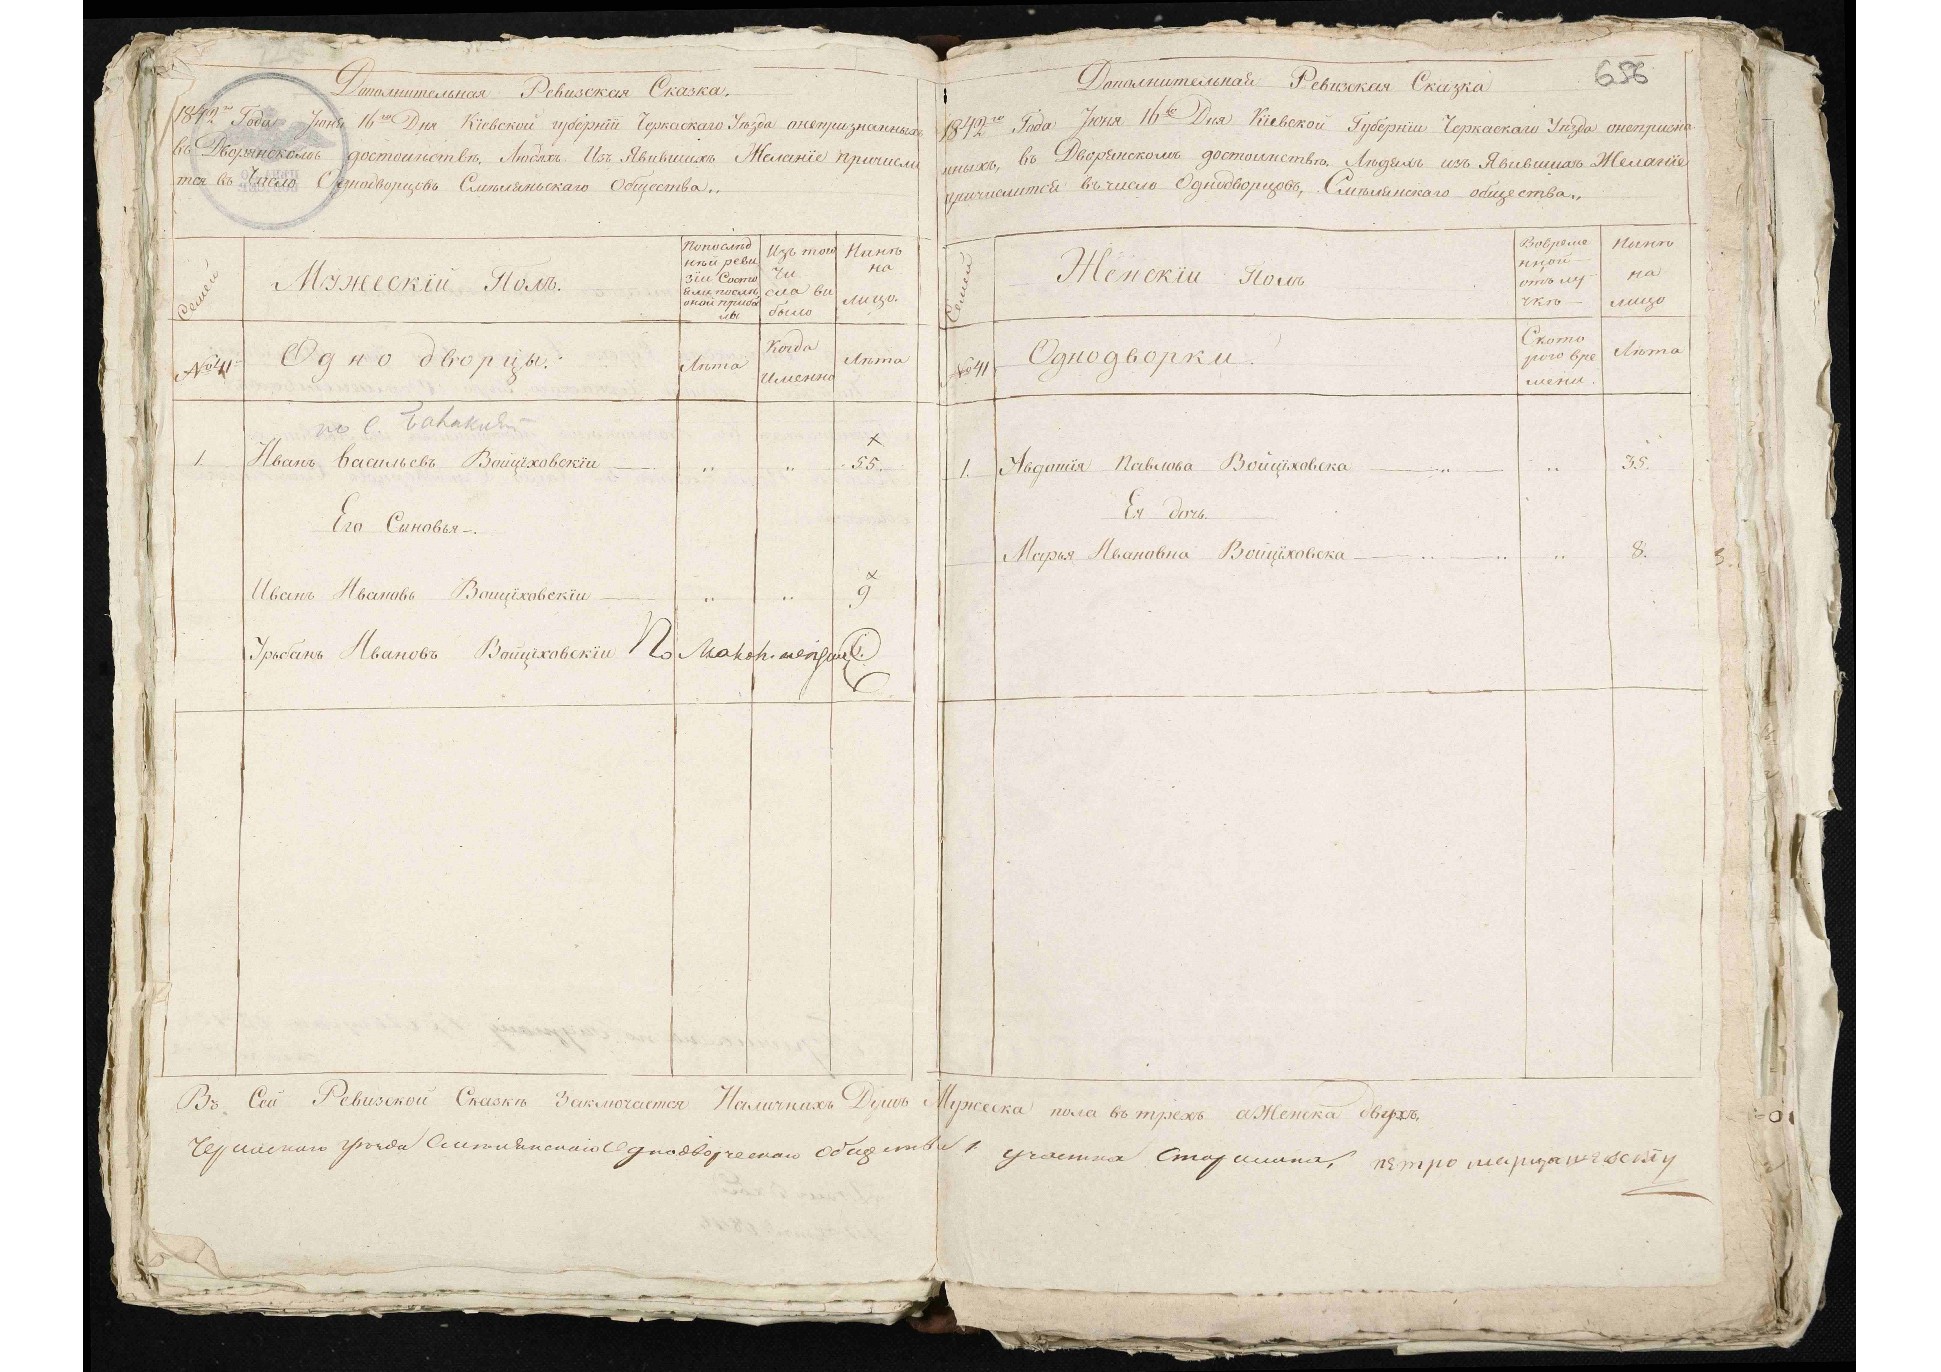 Дополнительная Ревизская Сказка.
1842го Года Июня 16го Дня Кіевской губерніи Черкаскаго Уѣзда онепризнанныхъ
въ Дворянскомъ достоинствѣ, Людяхъ Изъ Явившихъ Желаніе причисли
тся въ Число Однодворцовъ Смѣляньскаго Общества.,
Семей
Мужескій Полъ.
Попослѣд
нѣй реви
зіи Состо
яли послѣ
оной прибы
лы
Изъ того
Чи
сла вы
было
Нынѣ
на
лицо.
№ 41
Однодворцы.
Лѣта
Когда
Именно
Лѣта
по с.
1. Иванъ Васильевъ Войцѣховскіи „ „ 55.
Его Сыновья
Иванъ Ивановъ Войцѣховскіи „ „ 9
Урьбанъ Ивановъ Войцѣховскіи По
656
Дополнительная Ревизкая Сказка
1842го Года Июня 16го Дня Кіевской Губерніи Черкаскаго Уѣзда онепризна
нныхъ, въ Дворянскомъ достоинствѣ, Людяхъ изъ Явившихъ Желаніе
причислится въ число Однодворцовъ, Смѣлянскаго общества.,
Семей
Женскіи Полъ
Вовреме
нной
отълу
чкѣ
Нынѣ
на
лицо
№ 41
Однодворки.
Ското
раго вре
мени.
Лѣта
1. Авдотія Павлова Войцѣховска „ „ 35.
Ея дочь.
Марья Ивановна Войцѣховска „ „ „ 8.
Въ Сей Ревизской Сказкѣ Заключается Наличныхъ Душъ Мужеска пола въ трехъ аЖенска двухъ,
Черкаскаго уѣзда Смѣлянскаго Однодворческаго общества 1 участка Старшина,